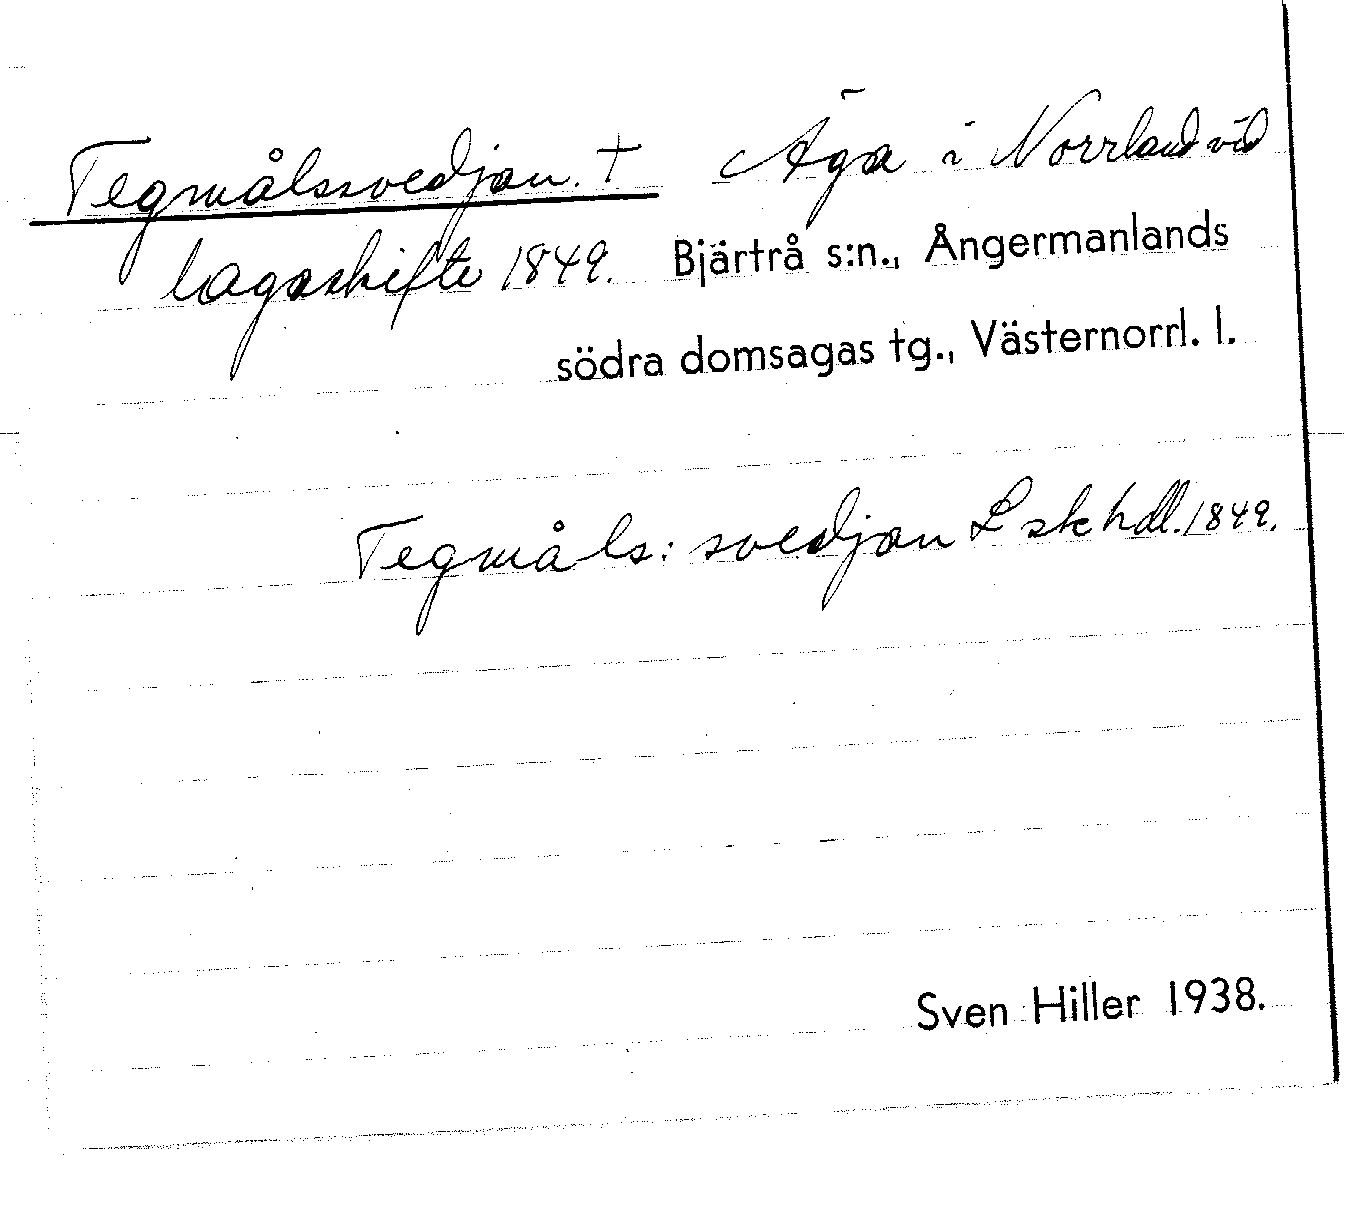 Tegmålssvedjan. † Äga i Norrland vid
lagaskifte 1849. Bjärtrå s:n., Ångermanlands
södra domsagas tg., Västernorrl. l.
Tegmåls: svedjan L sk hdl. 1849.
Sven Hiller 1938.